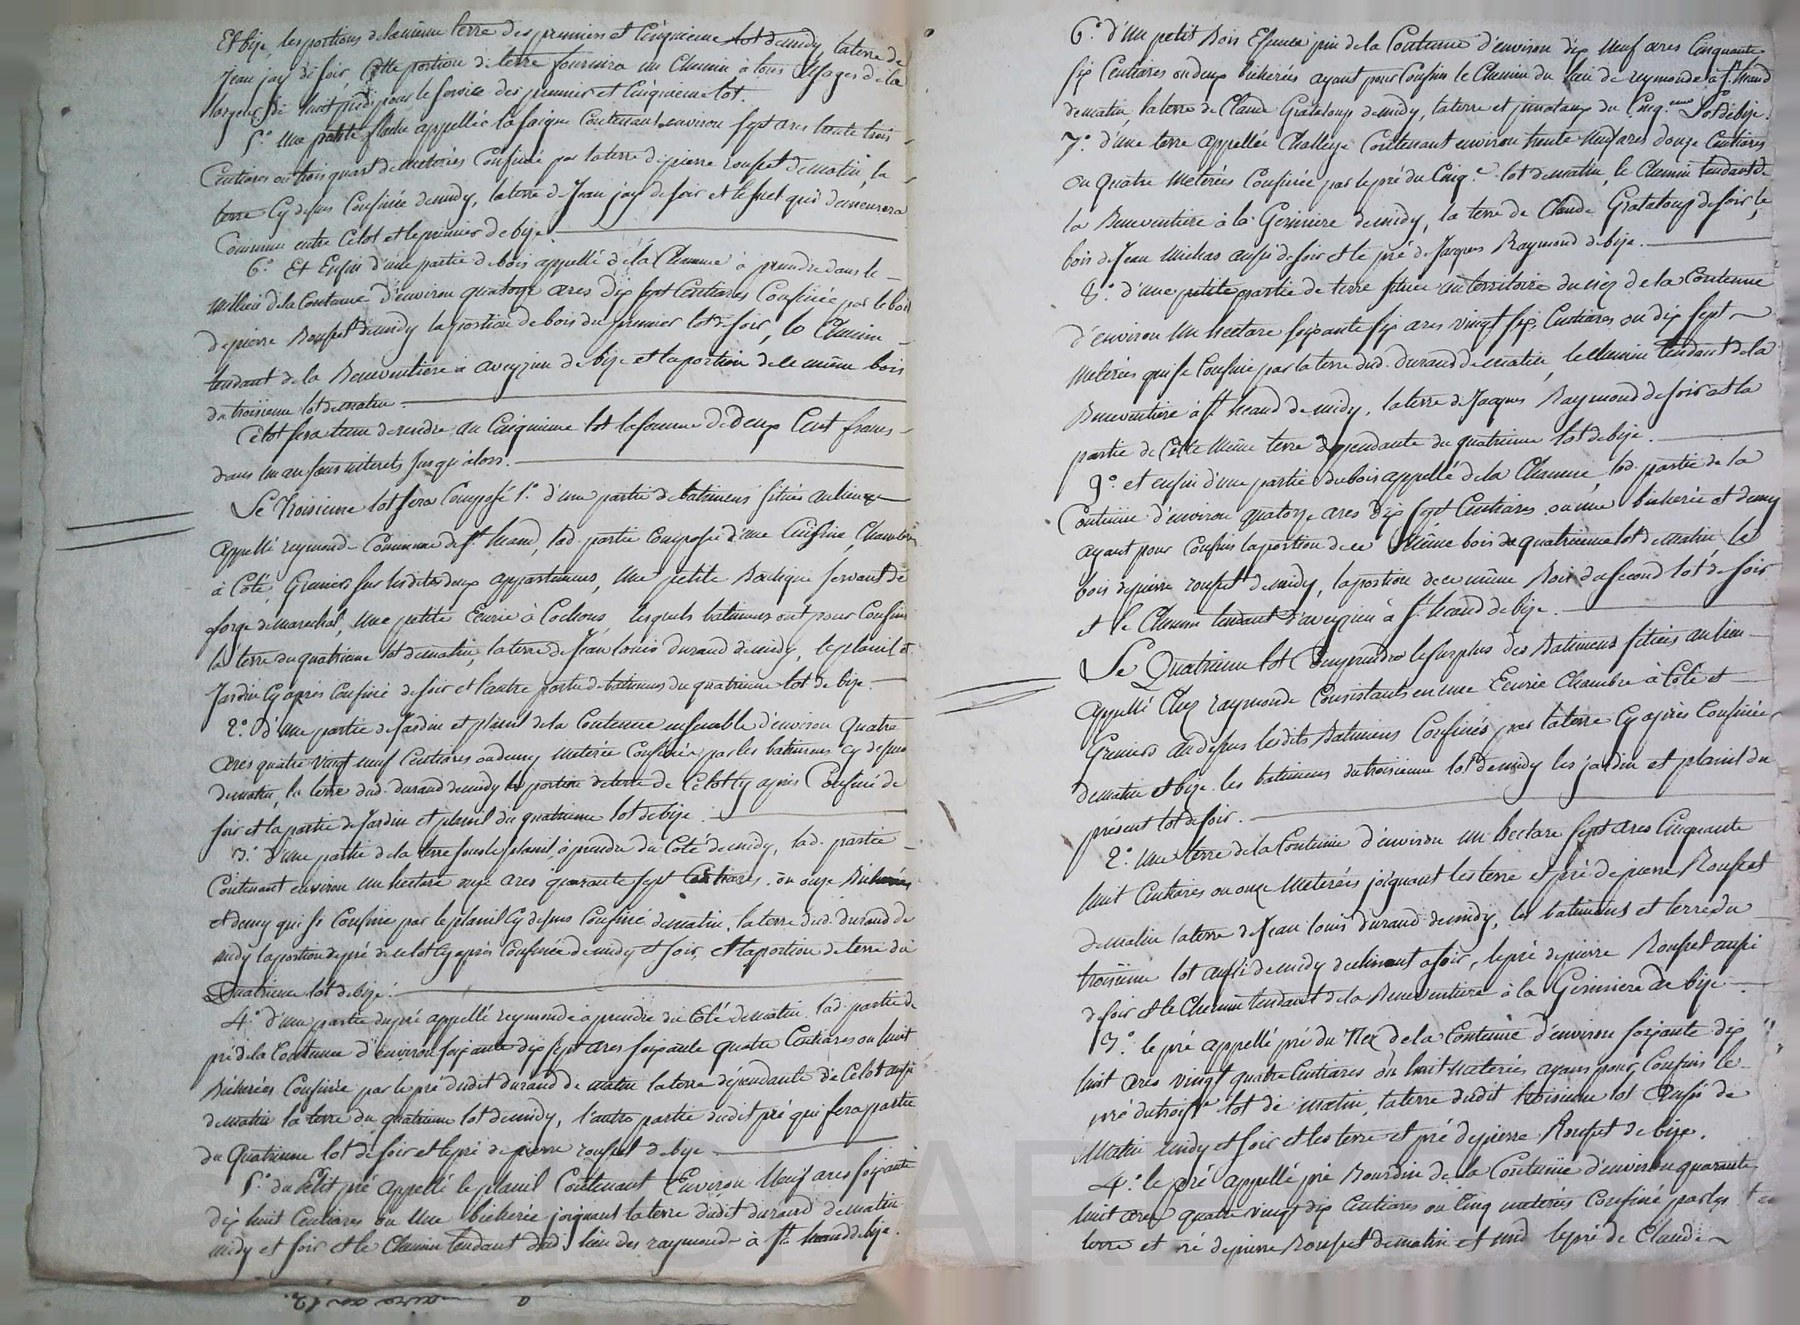 Et bize, les portions de la même terre des premiers et Cinquieme lot de midy, la terre de
Jean jay de soir Cette portion de terre fournira un Chemin à tous Usages de la
largeur de huit pieds pour le service des premier et Cinquieme lot.
5.° Une petite flache appellée la saigne Contenant environ sept ares trente trois
Centiares ou trois quart de meterées Confinée par la terre de pierre rouset de matin, la
terre Cy dessus Confinée de midy, la terre de Jean jay de soir et le suel qui demeurera
Commun entre Celot et le premier de bize.
6.° Et Enfin d'une partie de bois appellé de la Chamme à prendre dans le
millieu de la Contenue d'environ quatorze ares dix sept Centiares Confinée par le bois
de pierre Rouset de midy la portion de bois du premier lot de soir, le Chemin
tendant de la Beneventiere à aveyzieu de bize et la portion de ce même bois
du troisieme lot de matin.
Celot sera tenu de rendre au Cinquieme lot la somme de Deux Cent francs
dans un an sans interets jusqu'alors.
Le troisieme lot sera Composé 1.° d'une partie de batimens situés au lieu
appellé reymond Commune de St. heand, lad. partie composée d'une Cuisine, Chambre
à Coté, Greniers sur lesdites deux appartemens, Une petite Boutique servant de
forge de marechal, Une petite Ecurie à Cochons, lesquels batimens ont pour Confins
la terre du quatrieme lot de matin, la terre de Jean louis durand de midy, le plamil et
Jardin Cy après Confiné de soir et l'autre partie de batimens du quatrieme lot de bize.
2.° D'une partie de Jardin et plamil de la Contenue ensemble d'environ Quatre
ares quatre vingt neuf Centiares ou demy meterée Confinée par les batimens Cy dessus
de matin, la terre dud. durand de midy la portion de terre de Celot Cy après Confiné de
soir et la partie de Jardin et plamil du quatrieme lot de bize.
3.° d'une partie de la terre sous le plamil, à prendre du Coté de midy, lad. partie
Contenant environ Un hectare onze ares quarante sept Centiares ou onze Bicherées
et demy qui se Confine par le plamil Cy dessus Confiné de matin, la terre dud. durand de
midy la portion de pré de ce lot Cy après Confinée de midy et soir, et la portion de terre du
Quatrieme lot de bize.
4.° d'une partie du pré appellé reymond à prendre du Coté de matin lad. partie de
pré de la Contenue d'environ soixante dix sept ares soixante quatre Centiares ou huit
Bicherées Confinée par le pré dudit durand de matin la terre dépendante de Celot aussi
de matin la terre du quatrieme lot de midy, l'autre partie dudit pré qui fera partie
du Quatrieme lot de soir et le pré de pierre rouset de bize.
5.° du Petit pré appellé le plamil Contenant Environ Neuf ares soixante
dix huit Centiares ou Une bicherée joignant la terre dudit durand de matin
midy et soir et le Chemin tendant dud. lieu des raymond à St. heand de bize.
6.° d'Un petit Bois Essence pin de la Contenue d'environ dix Neuf ares Cinquante
six Centiares ou deux bicherées ayant pour Confins le Chemin du lieu de reymond à St. heand
de matin, la terre de Claude Grataloup de midy, la terre et pinatany du Cinq.eme Lot de bize.
7.° d'une terre appellée Challeye Contenant environ trente Neuf ares douze Centiares
ou Quatre Meterées Confinée par le pré du Cinq.e lot de matin, le Chemin tendant de
la Beneventiere à la Giriniere de midy, la terre de Claude Grataloup de soir, le
bois de Jean Michas aussi de soir et le pré de Jacques Raymond de bize.
8.° d'une petite partie de terre située au territoire du nez de la Contenue
d'environ Un hectare soixante six ares vingt six Centiares ou dix sept
meterées qui se Confine par la terre dud. durand de matin, le Chemin tendant de la
Beneventiere à St. heand de midy, la terre de Jacques Raymond de soir et la
partie de Cette Même terre dépendante du quatrieme lot de bize.
9.° et enfin d'une partie du bois appellé de la Chamme, lad. partie de la
Contenue d'environ quatorze ares dix sept Centiares ou une bicherée et demy
ayant pour Confins la portion de ce Même bois du quatrieme lot de matin le
bois de pierre rouset de midy, la portion de ce même Bois du second lot de soir
et le Chemin tendant d'aveyzieu à St. heand de bize.
Le Quatrieme lot Comprendra le surplus des Batimens situés au lieu
appellé Chez raymond Consistants en une Ecurie Chambre à Coté et
Greniers au dessus lesdits Batimens Confinés par la terre Cy après Confinée
de matin et bize les batimens du troisieme lot de midy les jardin et plamil du
présent lot de soir.
2.° Une terre de la Contenue d'environ un hectare sept ares Cinquante
huit Centiares ou onze Meterées joignant les terre et pré de pierre Rouset
de matin la terre de Jean louis durand de midy, les batimens et terre du
troisieme lot aussi de midy declinant a soir, le pré de pierre Rouset aussi
de soir et le Chemin tendant de la Beneventiere à la Giriniere de bize.
3.° le pré appellé pré du Nez de la Contenue d'environ soixante dix
huit ares vingt quatre Centiares ou huit Meterées ayant pour Confins le
pré du trois.e lot de matin, la terre dudit troisieme lot Aussi de
Matin midy et soir et les terre et pré de pierre Rouset de bize.
4.° le pré appellé pré Bourdin de la Contenue d'environ quarante
huit ares quatre vingt dix Centiares ou Cinq meterées Confiné par les
terre et pré de pierre Rouset de matin et midi le pré de Claude